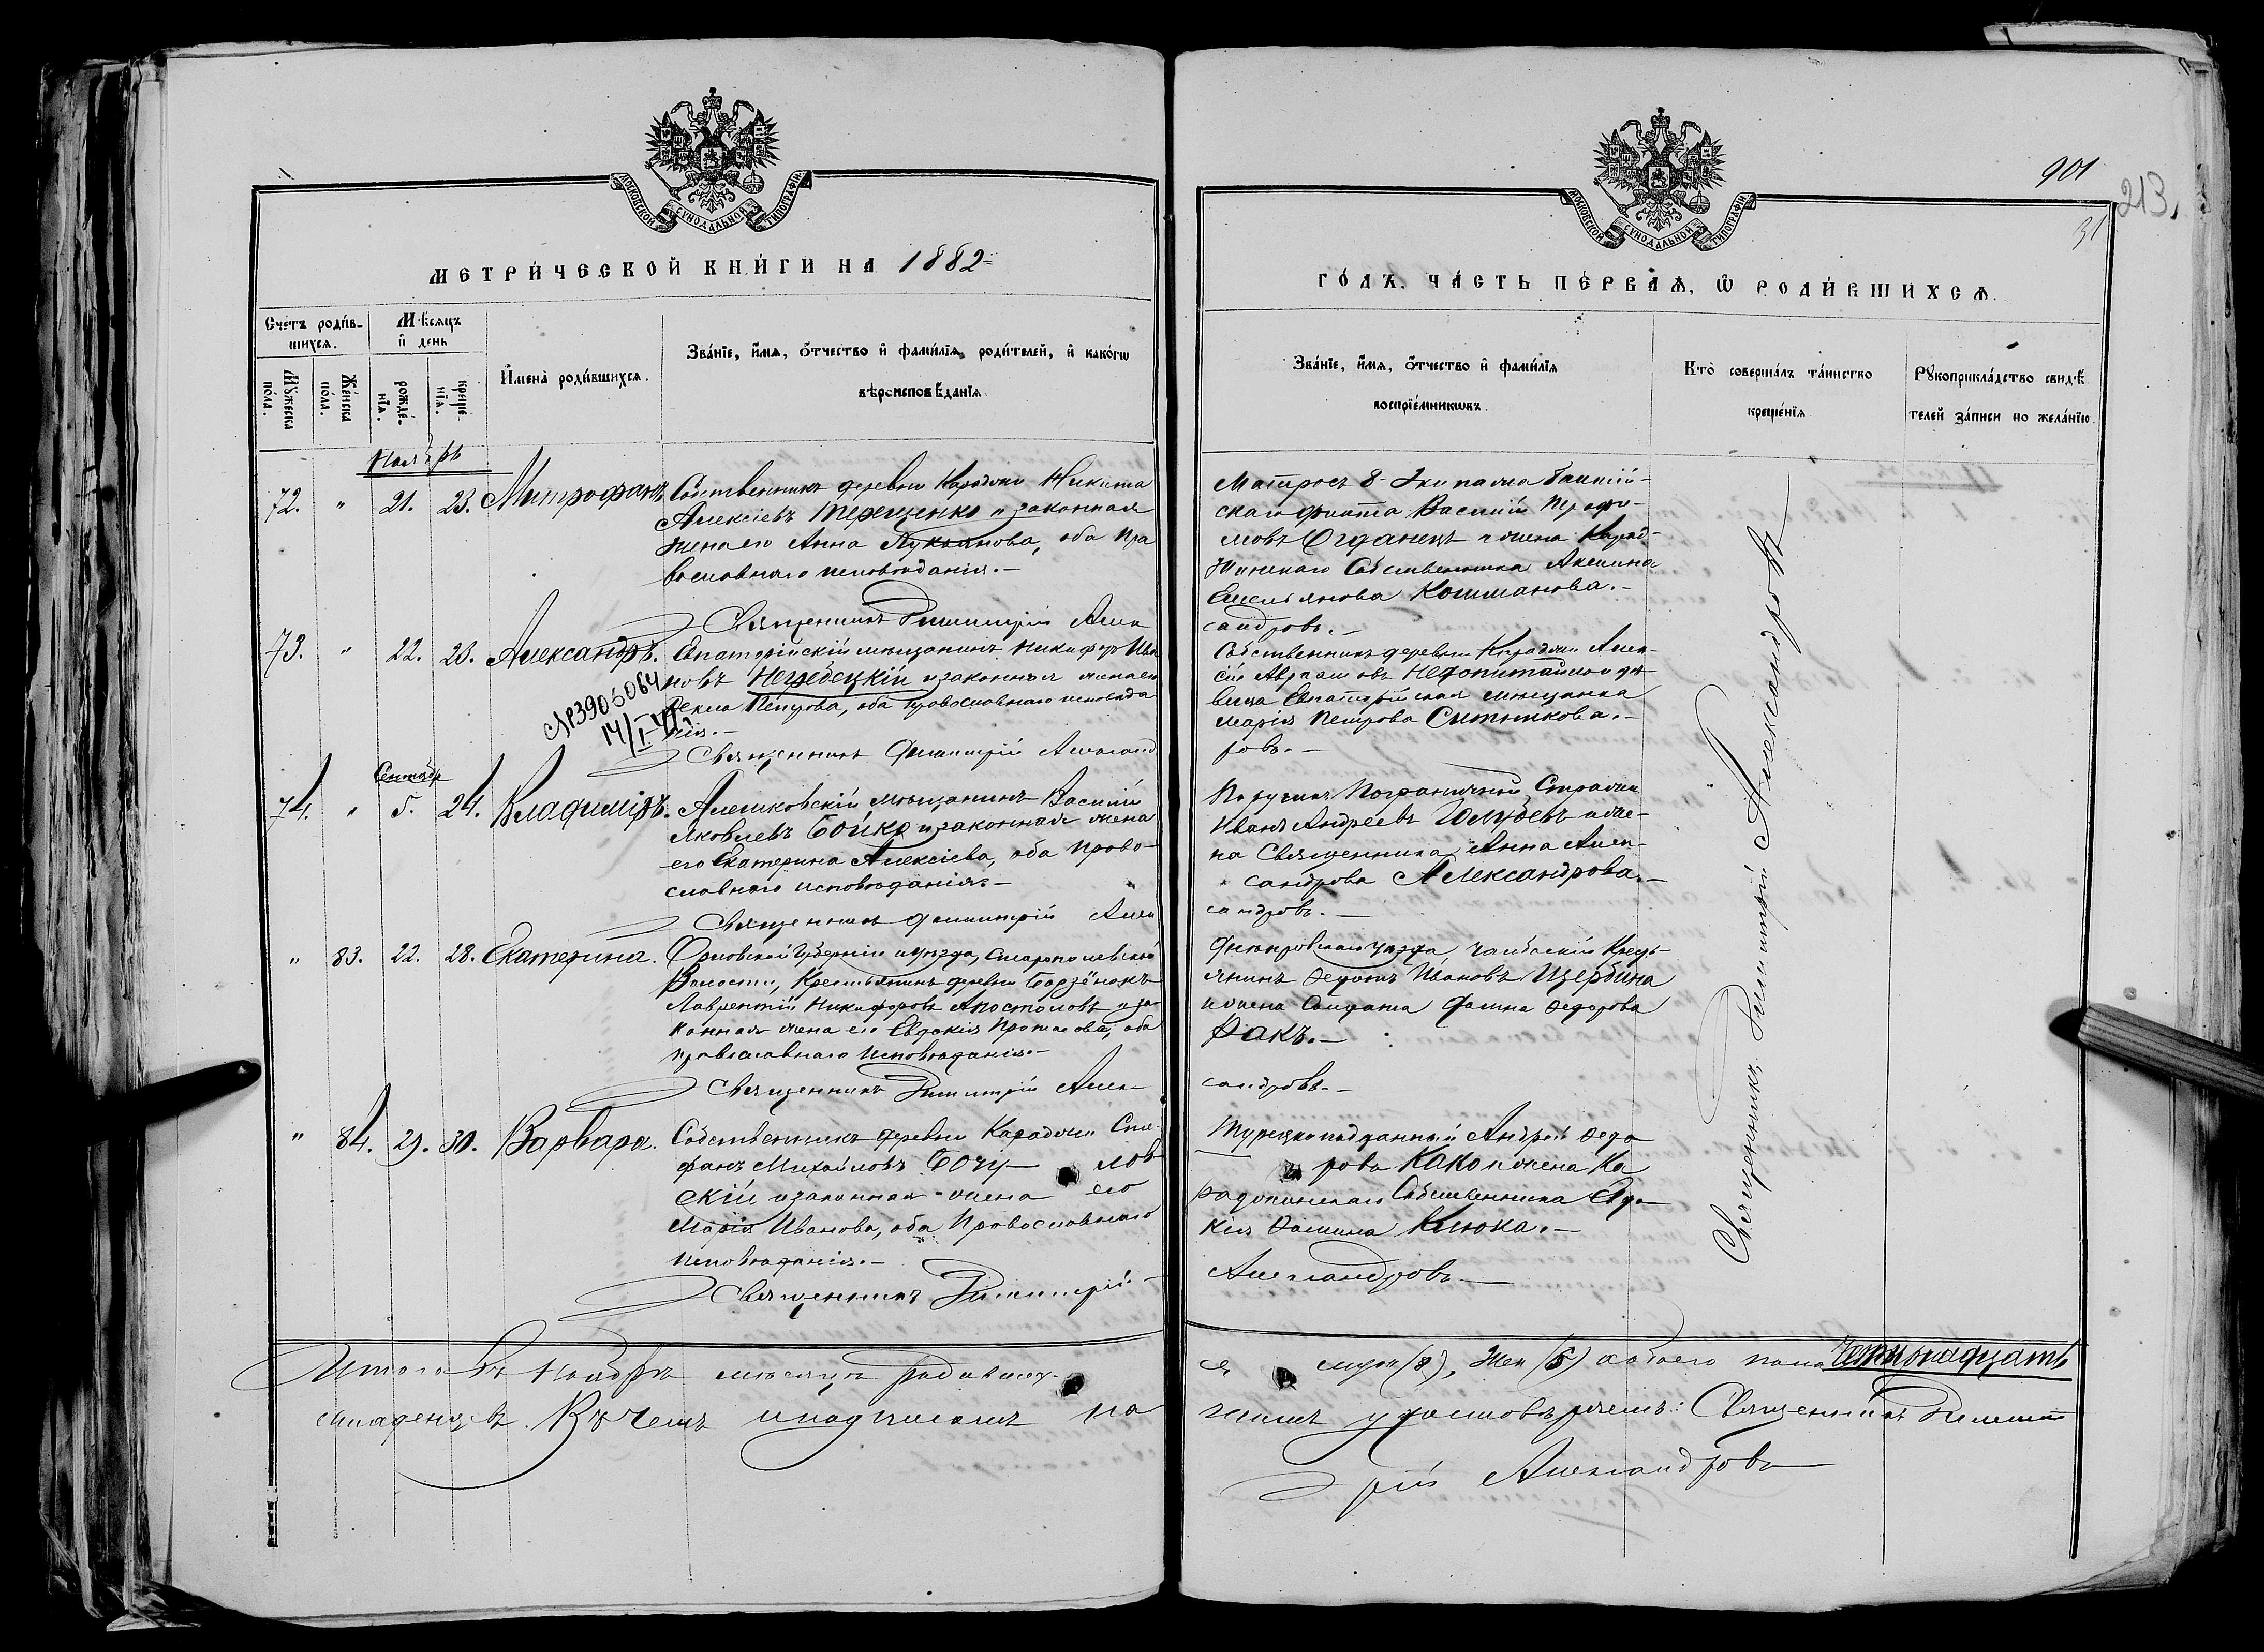 МОСКОВСКОЙ СУНОДАЛЬНОЙ ТИПОГРАФІИ
МЕТРИ́ЧЕСКОЙ КНИ́ГИ НА 1882
Счетъ роди́в-
шихся.
Мѣсяцъ
и҆ день
Мꙋжеска по́ла.
Же́нска по́ла.
рожде́-
нїя.
креще́-
нїя.
И҆мена̀ роди́вшихся.
Зва́нїе, и҆́мя, ѻ҆́тчество и҆ фами́лїя роди́телей, и҆ како́гѡ
вѣроисповѣ́данїя
Ноябрь
72. " 21. 23. Митрофанъ.
Собственникъ деревни Караджи Никита
Алексіевъ Терещенко и законная
жена его Анна Лукьянова, оба Пра
вославнаго исповѣданія.-
Священникъ Димитрій Алек
73. " 22. 23. Александръ.
Евпаторійскій мѣщанинъ Никифоръ Ива
новъ и законная жена его
Петрова, оба Православнаго исповѣда
нія.-
№3906064
14/I-
Священникъ Димитрій Александ
Сентябр
74. " 5. 24. Владиміръ.
Алешковскій мѣщанинъ Василій
Яковлевъ Бойко и законная жена
его Екатерина Алексіева, оба Право-
славнаго исповѣданія.-
Священникъ Димитрій Алек
" 83. 22. 28. Екатерина.
Орловской Губерніи и уѣзда,
Волости, Крестьянинъ деревни Борзёнокъ
Лаврентій Никифоровъ Апостоловъ и за-
конная жена его Евдокія Протасова, оба
православнаго Исповѣданія.-
Священникъ Димитрій Алек-
" 84. 29. 30. Варвара.
Собственникъ деревни Караджи Сте
фанъ Михайловъ Бочу- лов
скій и законная жена его
Марія Иванова, оба Православнаго
исповѣданія.-
Священникъ Димитрій-
Итого въ Ноябрѣ мѣсяцѣ родивших-
младенцевъ. Въ чемъ и подписомъ на
901
213.
31
МОСКОВСКОЙ СУНОДАЛЬНОЙ ТИПОГРАФІИ
ГО́ДЪ, ЧА́СТЬ ПЕ́РВАЯ, Ѡ҆ РОДИ́ВШИХСЯ.
Зва́нїе, и҆́мя, ѻ҆́тчество и҆ фами́лїя
воспрїе́мникѡвъ.
Кто̀ соверша́лъ та́инство
креще́нїя
Рꙋкоприкла́дство свидѣ́
телей за́писи по жела́нїю
Матросъ 8- Экипажа Балтій-
скаго флота Василій Трофи-
мовъ и жена Карад-
жинскаго Собственника Акилина
Емельянова Кошманова.-
сандровъ.-
Собственникъ деревни Караджи Алек-
сій Авраамовъ и дѣ-
вица Евпаторійская мѣщанка
Марія Петрова Ситникова.-
ровъ.-
Поручикъ Пограничной Стражи
Иванъ Андреевъ Голубевъ и же-
на Священника Анна Алек-
сандрова Александрова.-
сандровъ.-
Днѣпровскаго уѣзда Чалбаскій Кресть-
янинъ Ивановъ Щербина
и жена Солдата Ѳедорова
Ракъ.-
сандровъ.-
Турецкоподданный Андрей Ѳедо
ровъ Како и жена Ка
раджинскаго Собственника Евдо
кія Ѳомина Клюка.-
Александровъ.-
Священникъ Димитрій Александровъ
ся муж (8), Жен (6) а обоего пола Четырнадцать
шимъ удостовѣряемъ: Священникъ Димит
рій Александровъ